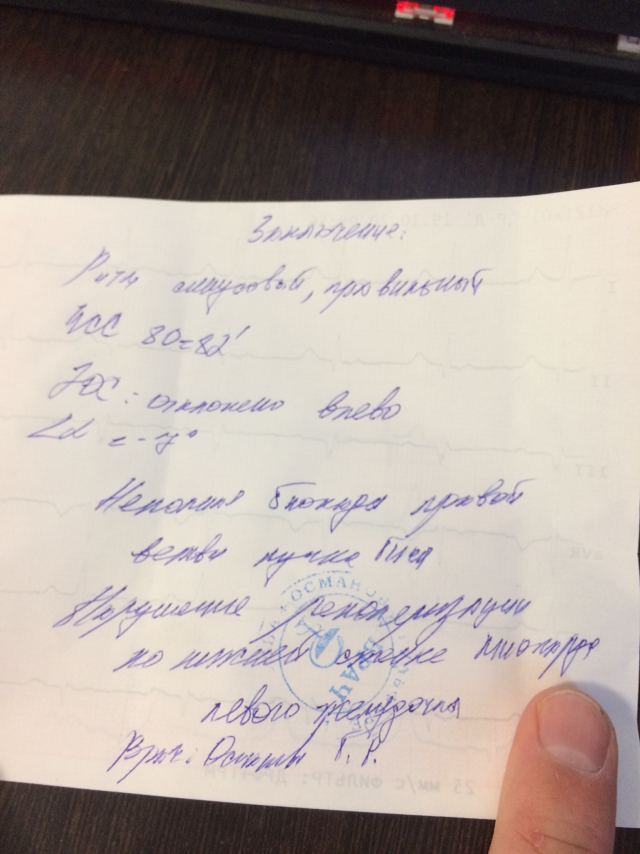 Заключение:
Ритм синусовый, правильный
ЧСС 80=82'
ЭОС: отклонено влево
∠α = -7°
Неполная блокада правой
ветви пучка Гиса
Нарушение реполяризации
по нижней стенке миокарда
левого желудочка
Врач: Г. Р.
ОСМАНОВ
ВРАЧ
25 мм/с ФИЛЬТР: